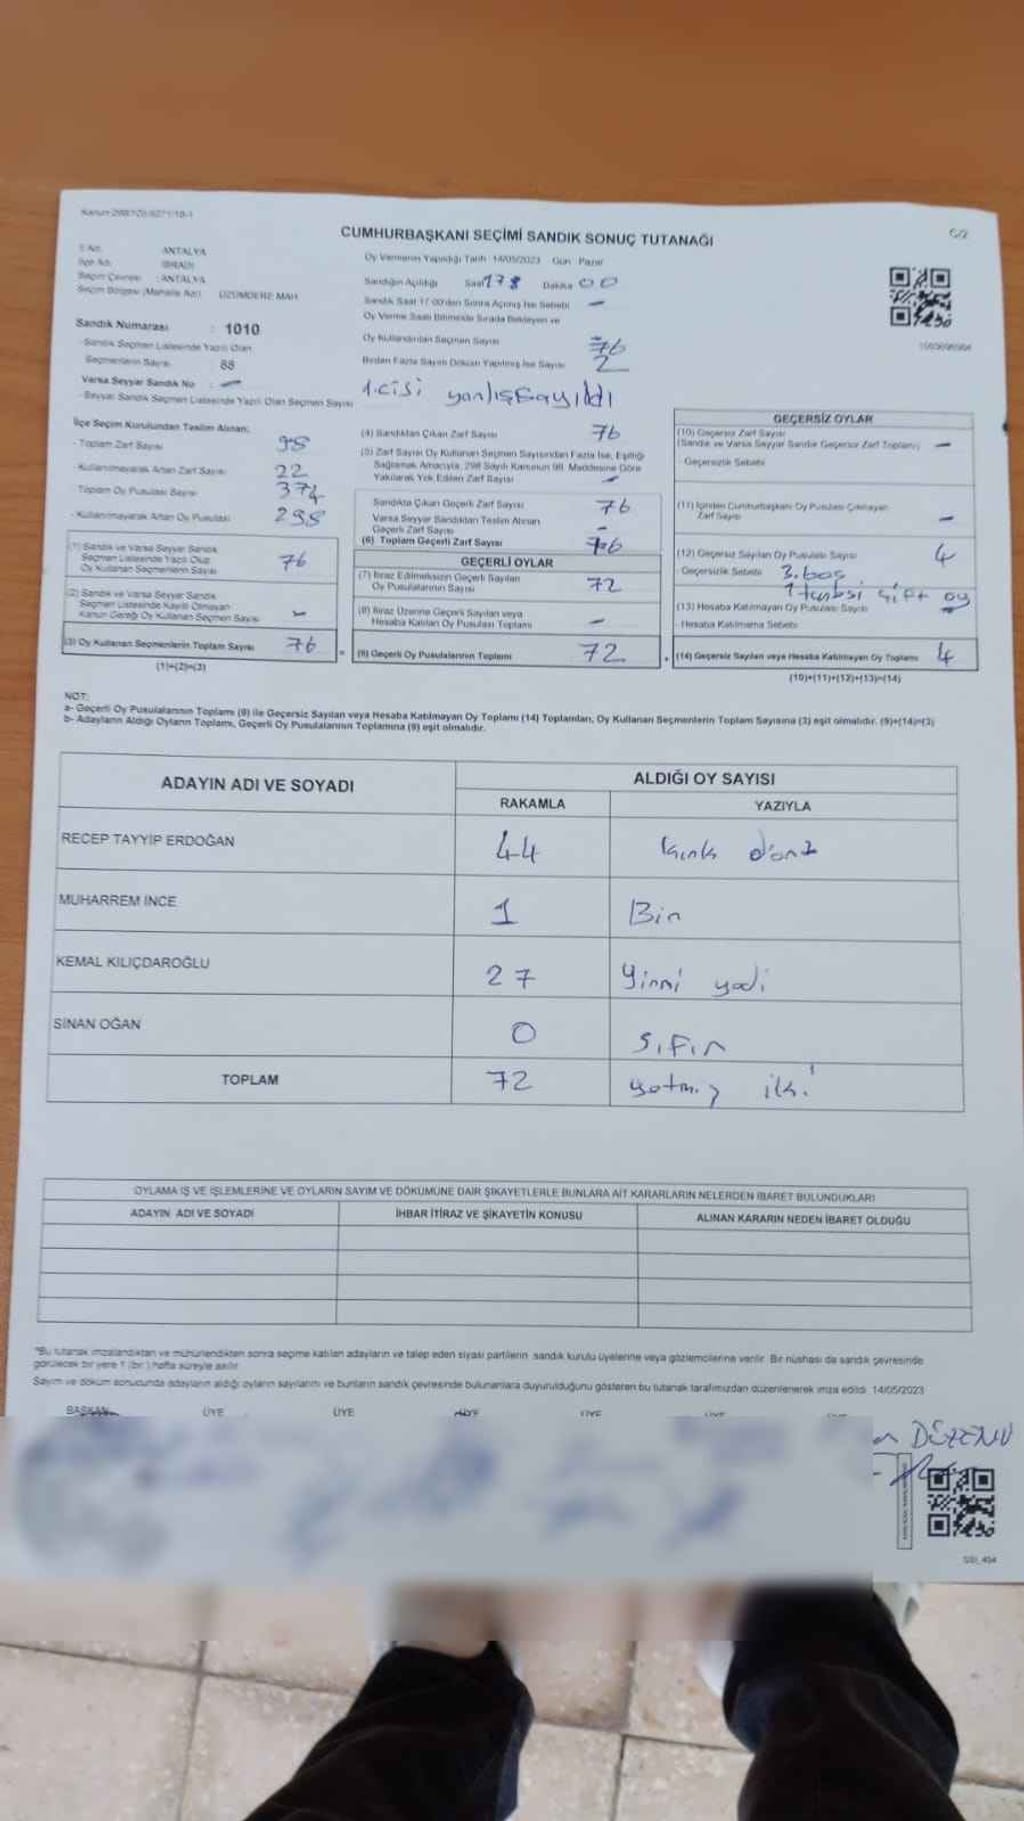 CUMHURBAŞKANI SEÇİMİ SANDIK SONUÇ TUTANAĞI
İl Adı : ANTALYA
İlçe Adı : İBRADI
Seçim Çevresi : ANTALYA
Seçim Bölgesi (Mahalle Adı) : ÜZÜMDERE MAH.
Sandık Numarası : 1010
Sandık Seçmen Listesinde Yazılı Olan
Seçmenlerin Sayısı 88
Varsa Seyyar Sandık No : -
Seyyar Sandık Seçmen Listesinde Yazılı Olan Seçmen Sayısı
Oy Vermenin Yapıldığı Tarih : 14/05/2023 Gün : Pazar
Sandığın Açıldığı Saat Dakika 00
Sandık Saat 17:00'den Sonra Açılmış İse Sebebi -
Oy Verme Saati Bitiminde Sırada Bekleyen ve
Oy Kullandırılan Seçmen Sayısı 76
Birden Fazla Sayım Döküm Yapılmış İse Sayısı 2
1.cisi yanlış sayıldı
İlçe Seçim Kurulundan Teslim Alınan;
- Toplam Zarf Sayısı 98
- Kullanılmayarak Artan Zarf Sayısı 22
- Toplam Oy Pusulası Sayısı 374
- Kullanılmayarak Artan Oy Pusulası 298
(1) Sandık ve Varsa Seyyar Sandık
Seçmen Listesinde Yazılı Olup
Oy Kullanan Seçmenlerin Sayısı 76
(2) Sandık ve Varsa Seyyar Sandık
Seçmen Listesinde Kayıtlı Olmayan
Kanun Gereği Oy Kullanan Seçmen Sayısı -
(3) Oy Kullanan Seçmenlerin Toplam Sayısı 76
(1)+(2)=(3)
(4) Sandıktan Çıkan Zarf Sayısı 76
(5) Zarf Sayısı Oy Kullanan Seçmen Sayısından Fazla İse, Eşitliği
Sağlamak Amacıyla, 298 Sayılı Kanunun 98. Maddesine Göre
Yakılarak Yok Edilen Zarf Sayısı -
Sandıkta Çıkan Geçerli Zarf Sayısı 76
Varsa Seyyar Sandıktan Teslim Alınan
Geçerli Zarf Sayısı -
(6) Toplam Geçerli Zarf Sayısı 76
GEÇERLİ OYLAR
(7) İtiraz Edilmeksizin Geçerli Sayılan
Oy Pusulalarının Sayısı 72
(8) İtiraz Üzerine Geçerli Sayılan veya
Hesaba Katılan Oy Pusulası Toplamı -
(9) Geçerli Oy Pusulalarının Toplamı 72
GEÇERSİZ OYLAR
(10) Geçersiz Zarf Sayısı
(Sandık ve Varsa Seyyar Sandık Geçersiz Zarf Toplamı) -
- Geçersizlik Sebebi
(11) İçinden Cumhurbaşkanı Oy Pusulası Çıkmayan
Zarf Sayısı -
(12) Geçersiz Sayılan Oy Pusulası Sayısı 4
- Geçersizlik Sebebi 3. boş
çift oy
(13) Hesaba Katılmayan Oy Pusulası Sayısı
- Hesaba Katılmama Sebebi
(14) Geçersiz Sayılan veya Hesaba Katılmayan Oy Toplamı 4
(10)+(11)+(12)+(13)=(14)
NOT:
a- Geçerli Oy Pusulalarının Toplamı (9) ile Geçersiz Sayılan veya Hesaba Katılmayan Oy Toplamı (14) Toplamları, Oy Kullanan Seçmenlerin Toplam Sayısına (3) eşit olmalıdır. (9)+(14)=(3)
b- Adayların Aldığı Oyların Toplamı, Geçerli Oy Pusulalarının Toplamına (9) eşit olmalıdır.
ADAYIN ADI VE SOYADI ALDIĞI OY SAYISI
RAKAMLA YAZIYLA
RECEP TAYYİP ERDOĞAN 44 kırk dört
MUHARREM İNCE 1 Bir
KEMAL KILIÇDAROĞLU 27 yirmi yedi
SİNAN OĞAN 0 sıfır
TOPLAM 72 yetmiş iki
OYLAMA İŞ VE İŞLEMLERİNE VE OYLARIN SAYIM VE DÖKÜMÜNE DAİR ŞİKAYETLERLE BUNLARA AİT KARARLARIN NELERDEN İBARET BULUNDUKLARI
ADAYIN ADI VE SOYADI İHBAR İTİRAZ VE ŞİKAYETİN KONUSU ALINAN KARARIN NEDEN İBARET OLDUĞU
*Bu tutanak imzalandıktan ve mühürlendikten sonra seçime katılan adayların ve talep eden siyasi partilerin sandık kurulu üyelerine veya gözlemcilerine verilir. Bir nüshası da sandık çevresinde
görülecek bir yere 1 (bir) hafta süreyle asılır.
Sayım ve döküm sonucunda adayların aldığı oyların sayılarını ve bunların sandık çevresinde bulunanlara duyurulduğunu gösteren bu tutanak tarafımızdan düzenlenerek imza edildi. 14/05/2023
BAŞKAN ÜYE ÜYE ÜYE ÜYE ÜYE